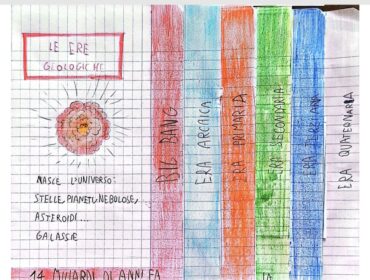 LE ERE
GEOLOGICHE
NASCE L'UNIVERSO:
STELLE, PIANETI, NEBULOSE,
ASTEROIDI...
GALASSIE
14 MILIARDI DI ANNI FA
BIG BANG
ERA ARCAICA
ERA PRIMARIA
ERA SECONDARIA
ERA TERZIARIA
ERA QUATERNARIA